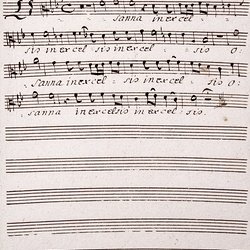 sanna in excel
sis in excel sis in excel sis O
sanna in excel sis in excel sis O
sanna in excelsis in excel sis.